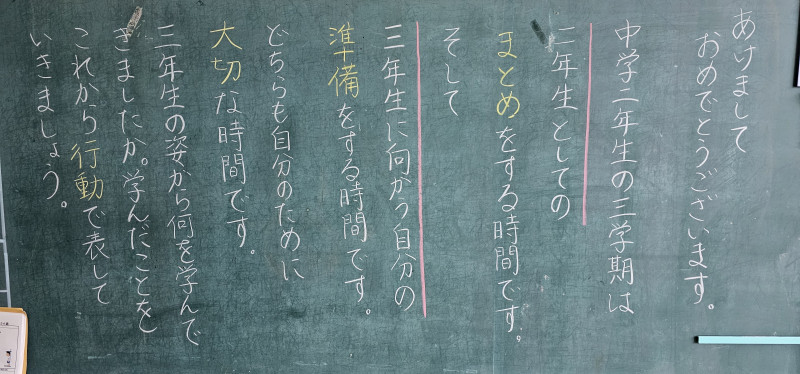 あけまして
おめでとうございます。
中学二年生の三学期は
二年生としての
まとめをする時間です。
そして
三年生に向かう自分の
準備をする時間です。
どちらも自分のために
大切な時間です。
三年生の姿から何を学んで
きましたか。学んだことを
これから行動で表して
いきましょう。